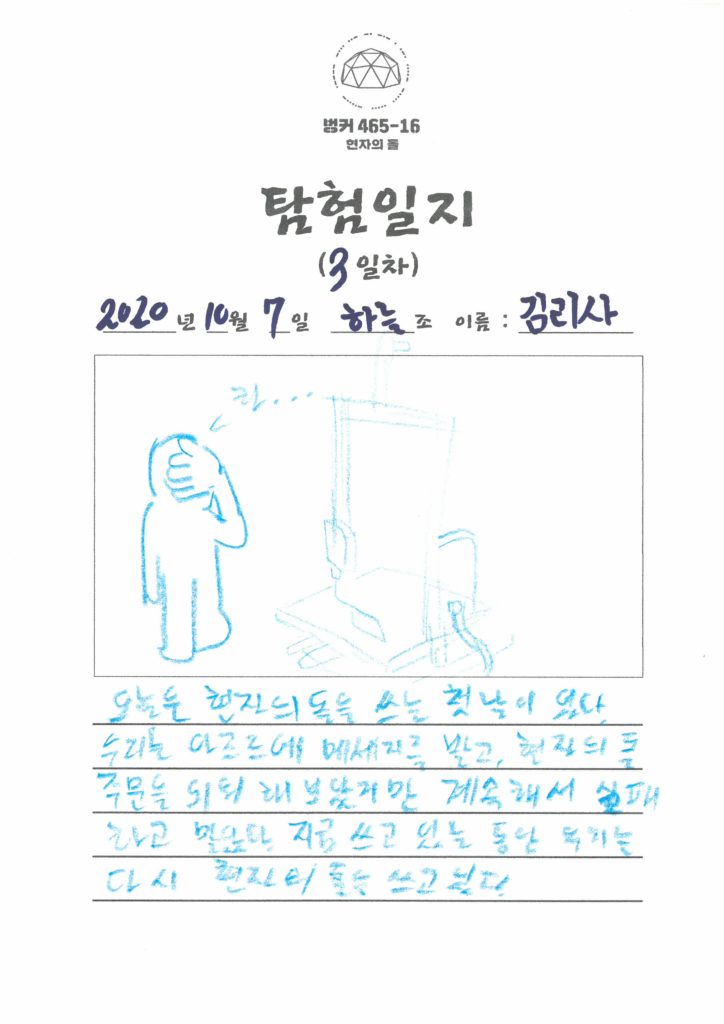 벙커 465-16
현자의 돌
탐험일지
(3일차)
2020년 10월 7일 하늘조 이름 : 김리사
라...
오늘은 현자의 돌을 쓰는 첫 날이 었다.
우리는 아르르에 메세지를 받고, 현자의 돌
주문을 외워 래 보았지만 계속해서 실패
하고 말았다. 지금 쓰고 있는 동안 우리는
다시 현자의 돌을 쓰고 있다.